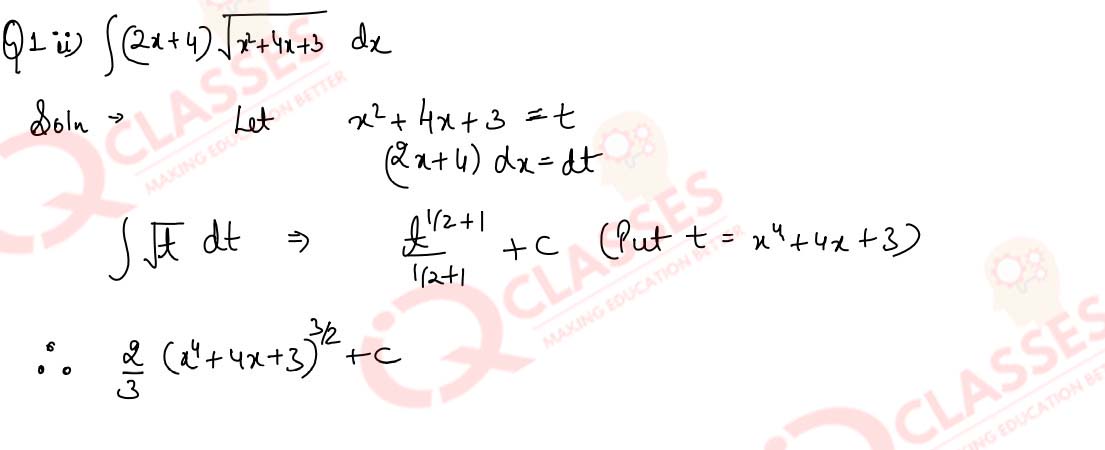 Q1 ii) ∫(2x+4)√(x²+4x+3) dx
Soln → Let x²+4x+3 = t
(2x+4) dx = dt
∫√t dt ⇒ t^(1/2+1)/(1/2+1) + C (Put t = x⁴+4x+3)
∴ 2/3 (x⁴+4x+3)^(3/2) + C
CLASSES
MAKING EDUCATION BETTER
CLASSES
MAKING EDUCATION BETTER
CLASSES
MAKING EDUCATION BETTER